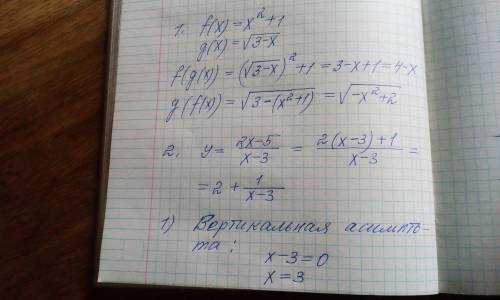 1. f(x) = x² + 1
g(x) = √(3-x)
f(g(x)) = (√(3-x))² + 1 = 3-x+1 = 4-x
g(f(x)) = √(3-(x²+1)) = √(-x²+2)
2. y = (2x-5)/(x-3) = (2(x-3)+1)/(x-3) =
= 2 + 1/(x-3)
1) Вертикальная асимпто-
та:
x-3=0
x=3